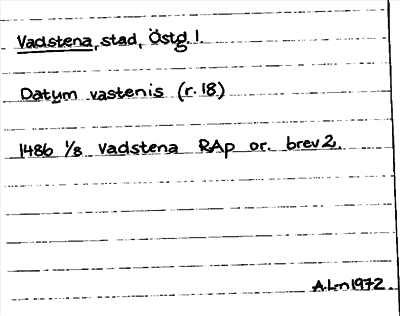 Vadstena, stad, Östg. l.
Datum vastenis (r. 18)
1486 1/8 Vadstena RAp or. brev 2.
A.Lm 1972.